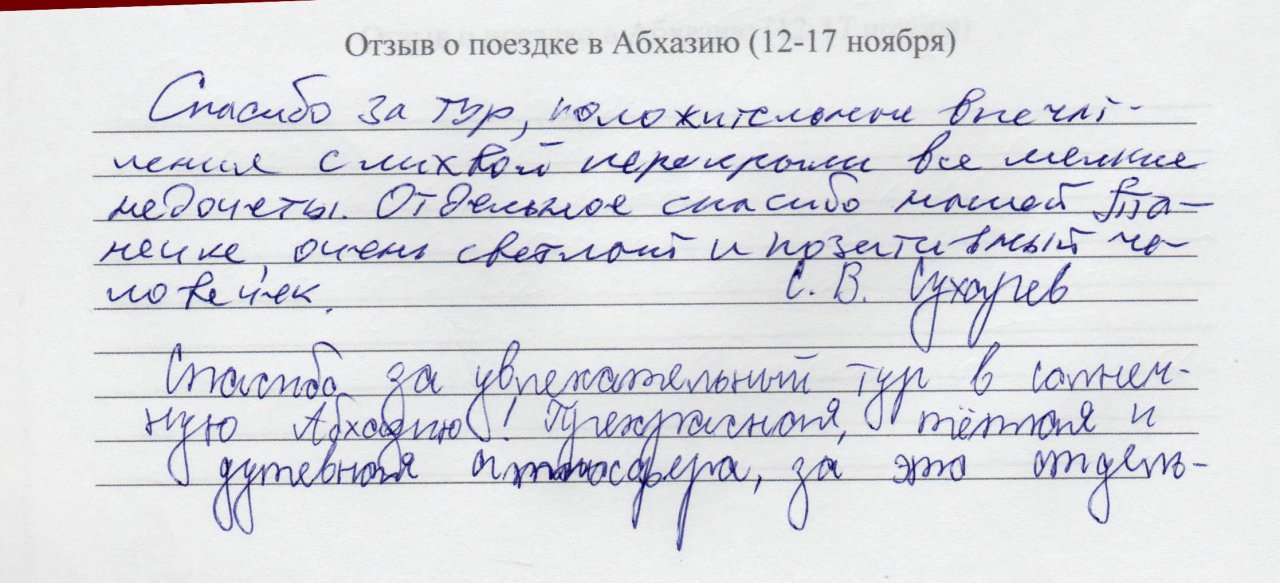 Отзыв о поездке в Абхазию (12-17 ноября)
Спасибо за тур, положительные впечат-
ления с лихвой перекрыли все мелкие
недочеты. Отдельное спасибо нашей Та-
нечке, очень светлый и позитивный че-
ловечек.
С. В. Сухарев
Спасибо за увлекательный тур в солнеч-
ную Абхазию! Прекрасная, тёплая и
душевная атмосфера, за это отдель-